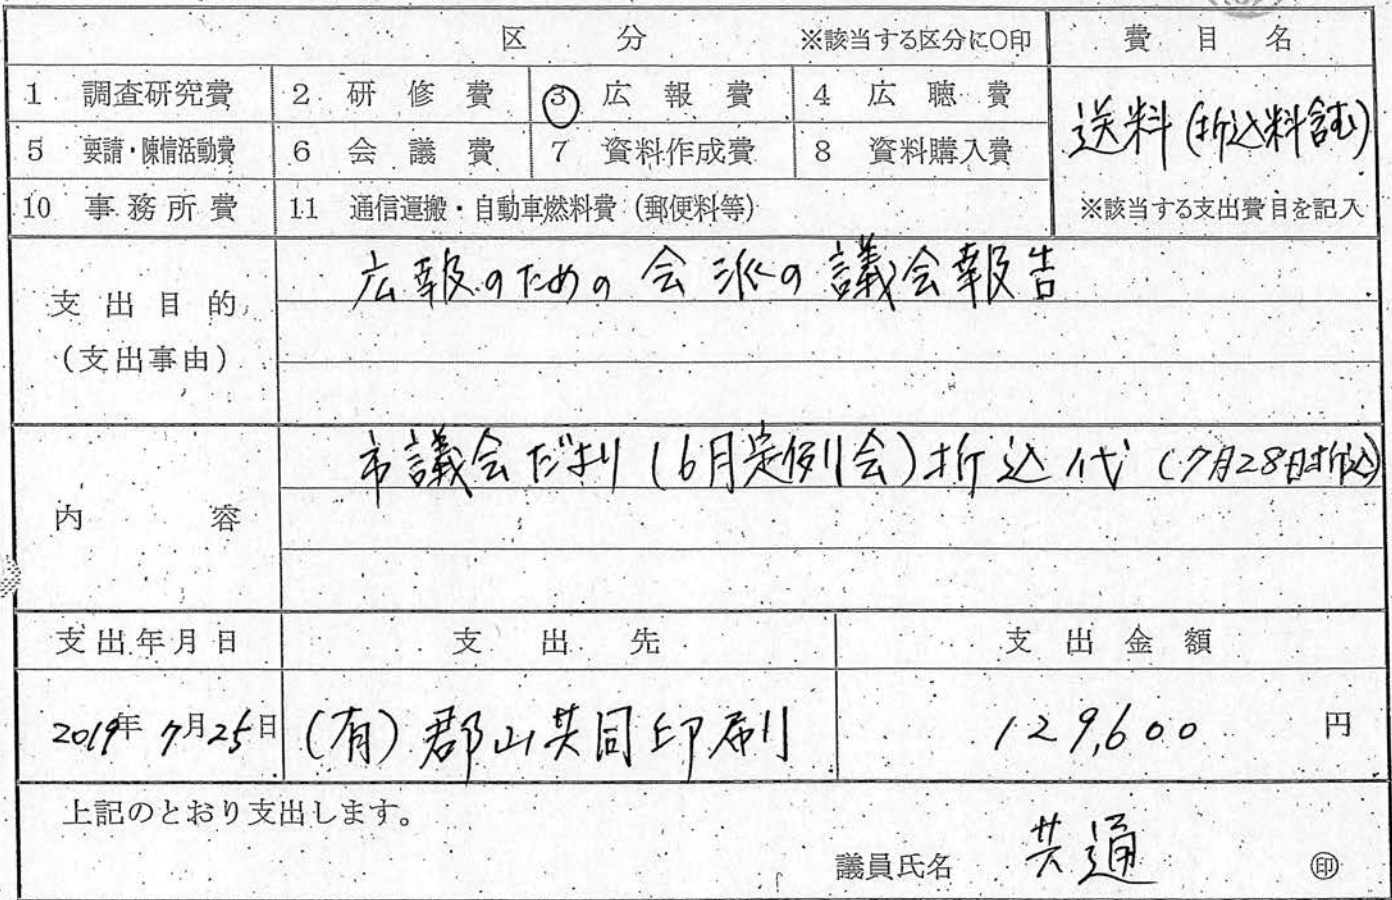 区 分 ※該当する区分に○印 費 目 名
1 調査研究費 2 研 修 費 ③ 広 報 費 4 広 聴 費
送料(折込料含む)
5 要請・陳情活動費 6 会 議 費 7 資料作成費 8 資料購入費
10 事務所費 11 通信運搬・自動車燃料費(郵便料等) ※該当する支出費目を記入
支出目的
(支出事由)
広報のための会派の議会報告
内 容
市議会だより(6月定例会)折込代(7月28日折込)
支出年月日 支 出 先 支 出 金 額
2019年 7月25日 (有)郡山共同印刷 129,600 円
上記のとおり支出します。
議員氏名 共通 ㊞